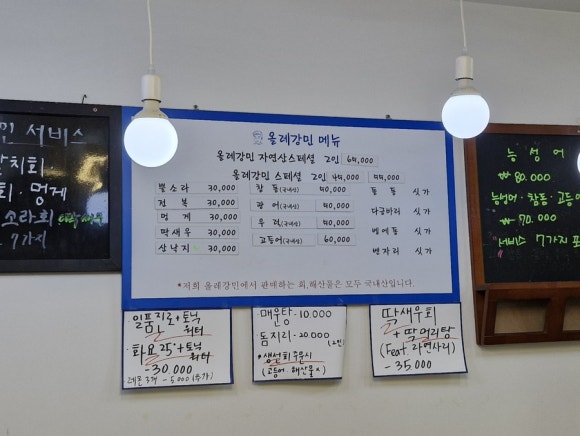 서비스
갈치회
회·멍게
소라회
7가지
올레강민 메뉴
올레강민 자연산스페셜 2인 64,000
올레강민 스페셜 2인 44,000
뿔소라 30,000 참돔(국내산) 40,000 돌돔 싯가
전복 30,000 광어(국내산) 40,000 다금바리 싯가
멍게 30,000 우럭(국내산) 40,000 벵에돔 싯가
딱새우 30,000 고등어(국내산) 60,000 벤자리 싯가
산낙지 30,000
*저희 올레강민에서 판매하는 회,해산물은 모두 국내산입니다.*
능성어
₩80.000
능성어·참돔·고등어
₩70.000
서비스 7가지 포
일품진로+토닉
워터
화요25°+토닉
워터
-30.000
레몬 3개 - 5,000 (추가)
매운탕-10.000
돔지리-20.000
(2인)
*생선회 주문시
(고등어. 해산물 x)
딱새우회
+딱머리탕
(Feat.라면사리)
-35.000